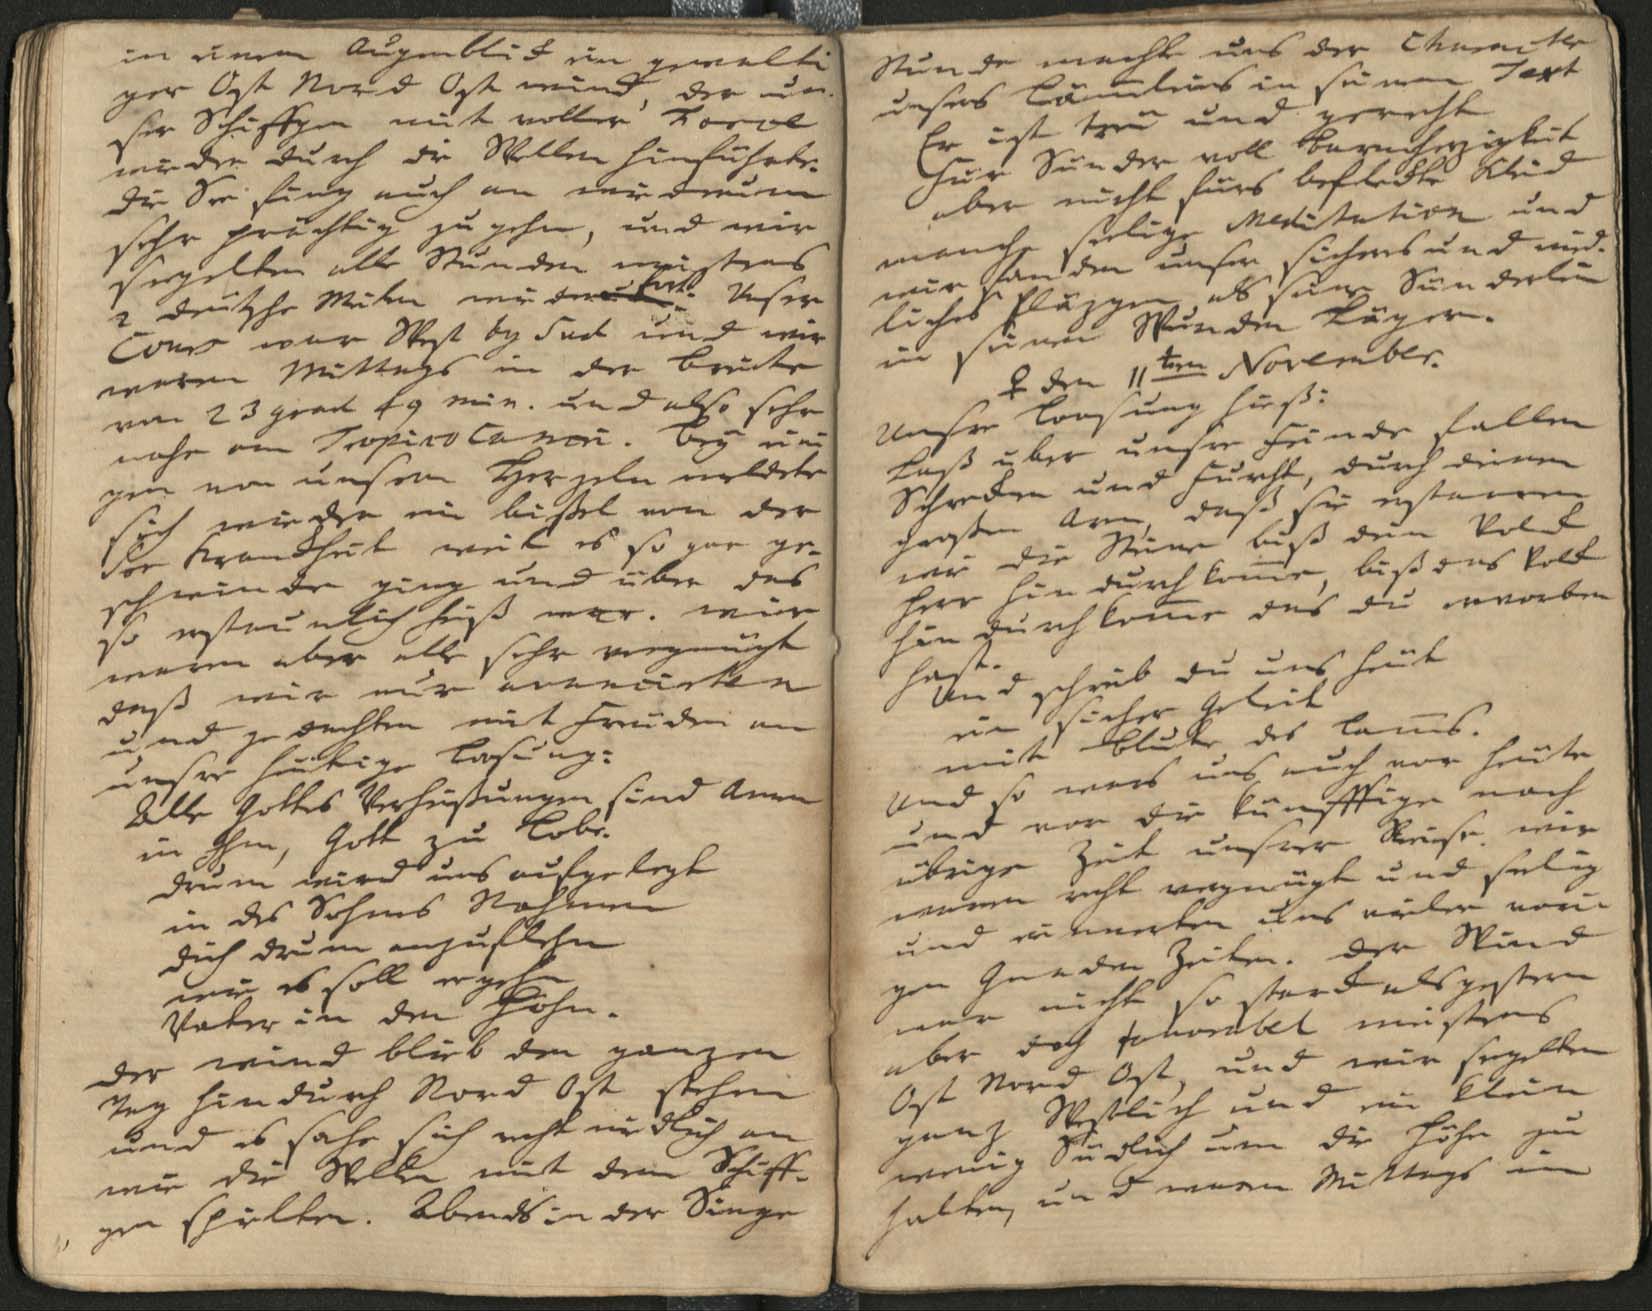 in einem Augenblick ein gewalti
ger Ost Nord Ost wind, der un-
ser Schiffgen mit voller Force
wieder durch die Wellen hinführte.
die See fing auch an wiederum
sehr prächtig zu gehn, und wir
segelten alle Stunden meistens
2 deutsche Meilen Unser
Cours war West by Sud und wir
waren Mittags in der Breite
von 23 grad 49 min. und also sehr
nahe am Tropico Cancri. Bey eini
gen von unsern Herzeln meldete
sich wieder ein bissel von der
See Kranckheit weil es so gar ge-
schwinde ging und über das
so erstaunlich heiß war. wir
waren aber alle sehr vergnügt
daß wir nur avancirten
und gedachten mit Freuden an
unsre heutige Losung:
Alle Gottes Verheißungen sind Amen
in Ihm, Gott zu Lobe.
drum wird uns aufgelegt
in des Sohnes Nahmen
dich drum anzuflehn
wie es soll ergehn
Vater in den Höhn.
der wind blieb den ganzen
Tag hindurch Nord Ost stehen
und es sahe sich recht niedlich an
wie die Wellen mit dem Schiff-
gen spielten. Abends in der Singe
Stunde machte uns der Character
unsers Lämmleins in seinem Text
Er ist treu und gerecht
Für Sünder voll Barmherzigkeit
aber nicht fürs befleckte Kleid
manche seelige Meditation und
wir fanden unser sichers und nied-
liches Pläzgen als seine Sünderlein
in seinen Wunden Läger.
♀ den 11ten November.
Unsre Loosung hieß:
Laß über unsre Feinde fallen
Schrecken und Furcht, durch deinen
großen Arm, daß sie erstarren
wie die Steine biß dein Volck
Herr hindurch komme, biß das Volck
hindurch komme das du erworben
hast.
Und schreib du uns heut
ein sicher Geleit
mit Blute des Lamms.
Und so wars uns auch vor heute
und vor die künfftige noch
übrige Zeit unsrer Reise. wir
waren recht vergnügt und seelig
und erinnerten uns vieler vori-
gen Gnaden Zeiten. der Wind
war nicht so starck als gestern
aber doch favorabel meistens
Ost Nord Ost, und wir segelten
ganz Westlich und ein klein
wenig Südlich um die Höhe zu
halten, und waren Mittags im